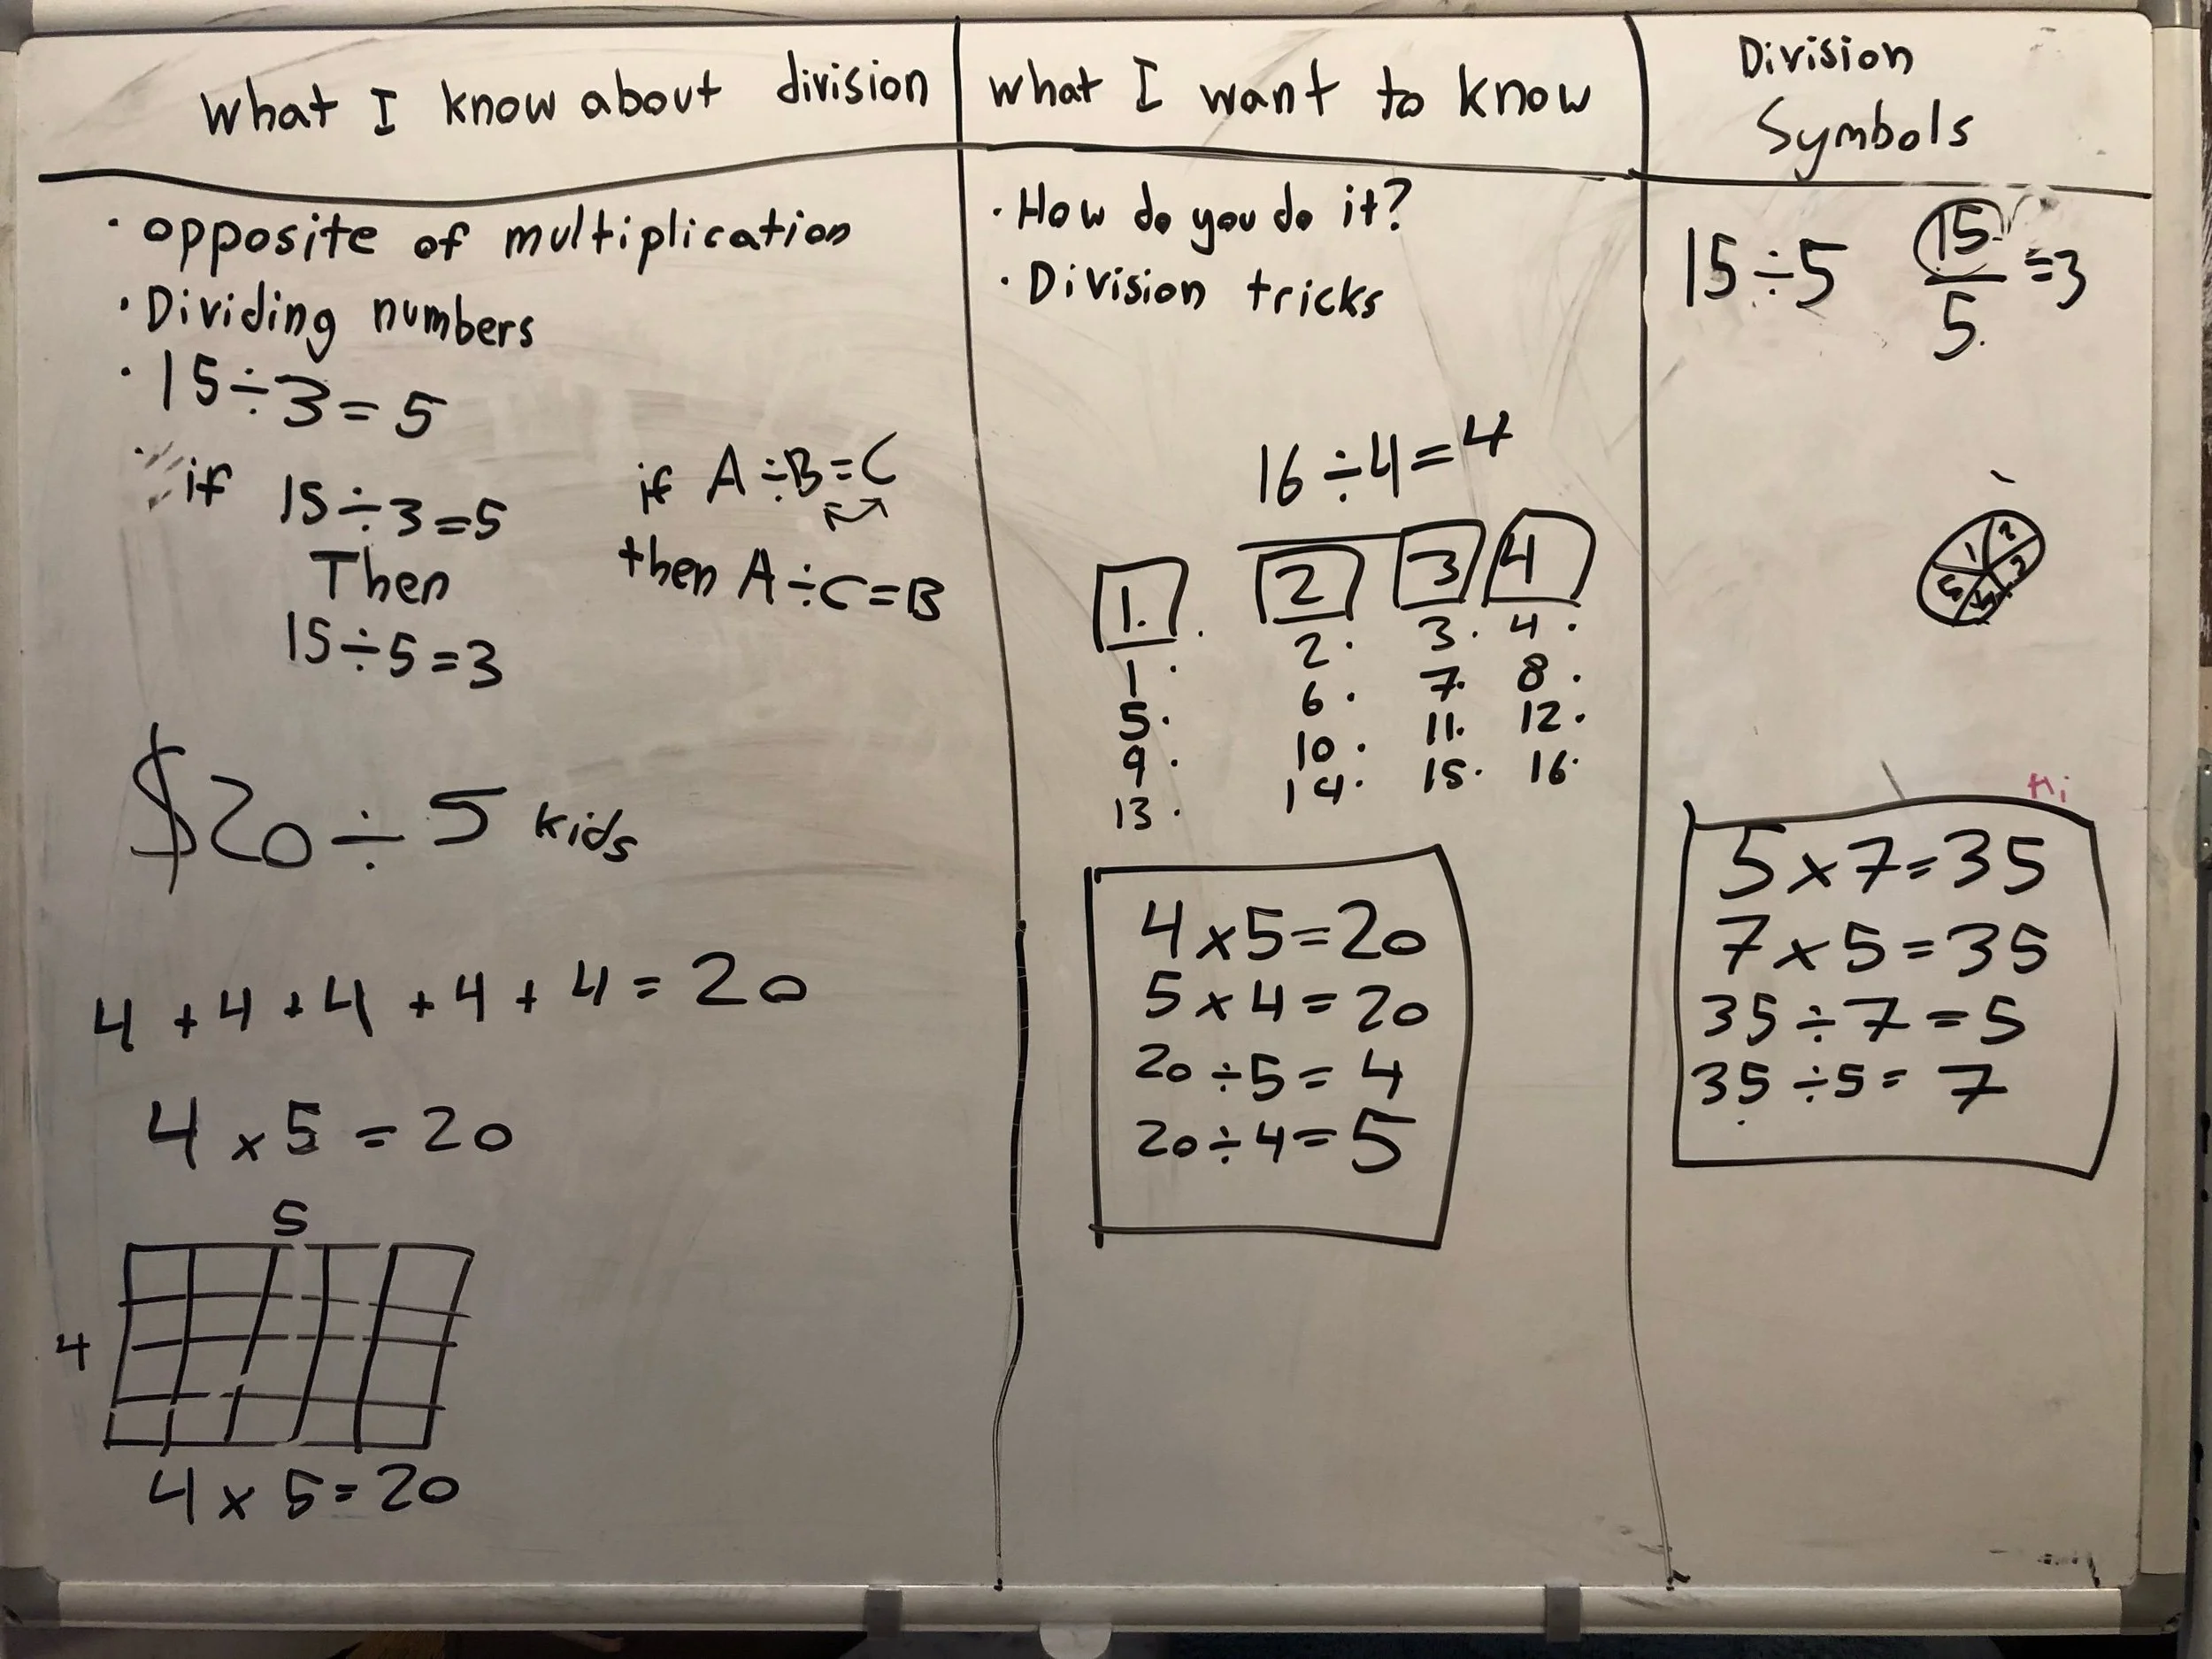 What I know about division
• opposite of multiplication
• Dividing numbers
• 15÷3=5
if 15÷3=5
Then
15÷5=3
if A÷B=C
then A÷C=B
$20÷5 kids
4+4+4+4+4=20
4×5=20
5
4
4×5=20
What I want to know
• How do you do it?
• Division tricks
16÷4=4
1. 2 3 4
1. 2. 3. 4.
5. 6. 7. 8.
9. 10. 11. 12.
13. 14. 15. 16.
4×5=20
5×4=20
20÷5=4
20÷4=5
Division
Symbols
15÷5 15/5=3
1 2
5
Hi
5×7=35
7×5=35
35÷7=5
35÷5=7